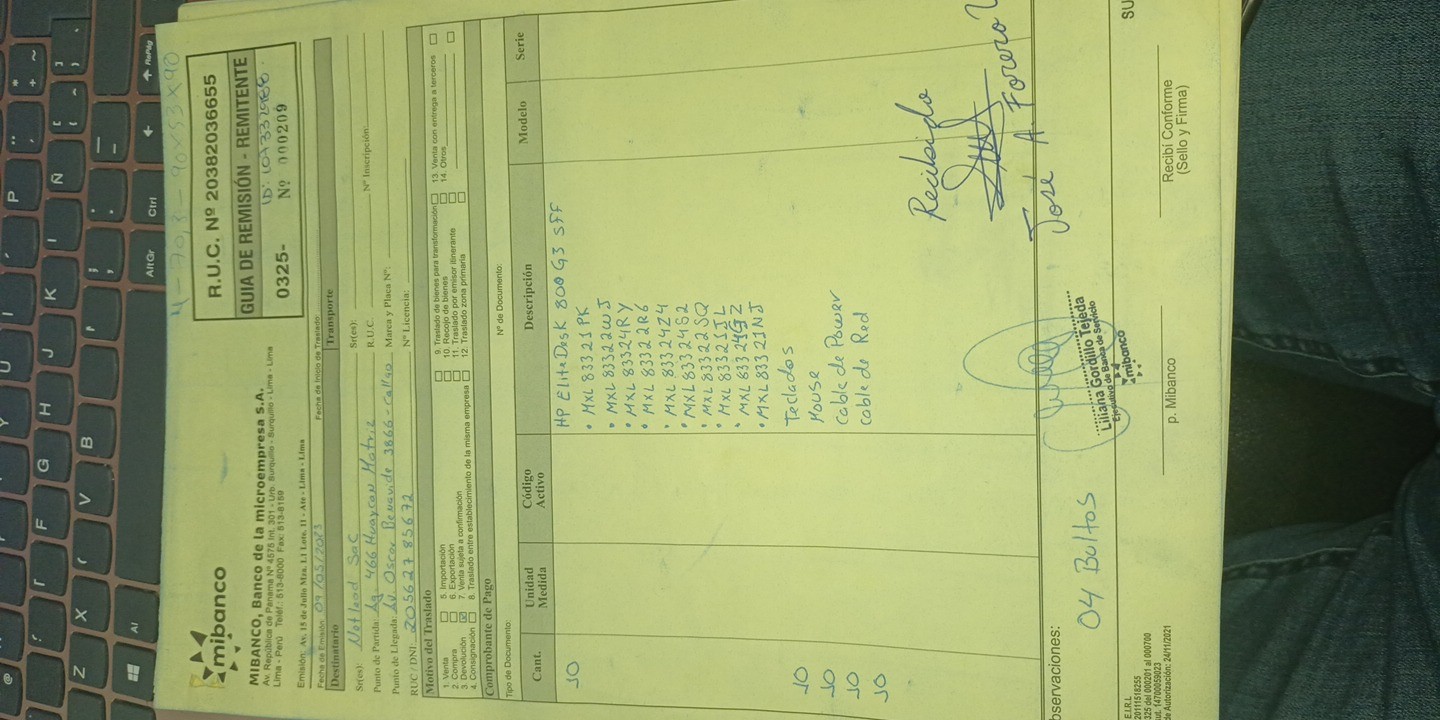 4-70,3 - 90x53x90
mibanco
R.U.C. Nº 20382036655
GUIA DE REMISIÓN - REMITENTE
0325- Nº 000209
MIBANCO, Banco de la microempresa S.A.
Av. República de Panamá Nº 4575 Int. 301 - Urb. Surquillo - Surquillo - Lima - Lima
Lima - Perú Teléf.: 513-8000 Fax: 513-8159
Emisión: Av. 15 de Julio Mza. L1 Lote. 11 - Ate - Lima - Lima
Fecha de Emisión: 09/05/2023 Fecha de Inicio de Traslado:
Destinatario Transporte
Sr(es): Netlead Sac Sr(es):
Punto de Partida: Ag 466 Huaycan Matriz R.U.C. Nº Inscripción:
Punto de Llegada: Av. Oscar Benavide 3866 - Callao Marca y Placa Nº:
RUC / DNI: 20562785672 Nº Licencia:
Motivo del Traslado
1. Venta 5. Importación 9. Traslado de bienes para transformación 13. Venta con entrega a terceros
2. Compra 6. Exportación 10. Recojo de bienes 14. Otros
3. Devolución 7. Venta sujeta a confirmación 11. Traslado por emisor itinerante
4. Consignación 8. Traslado entre establecimiento de la misma empresa 12. Traslado zona primaria
Comprobante de Pago
Tipo de Documento: Nº de Documento:
Cant. Unidad Medida Código Activo Descripción Modelo Serie
10 HP EliteDesk 800 G3 SFF
• MXL83321PK
• MXL83322WJ
• MXL83324RY
• MXL83322R6
• MXL83324Z4
• MXL83324S2
• MXL83322SQ
• MXL83321JL
• MXL83324GZ
• MXL83321NJ
10 Teclados
10 Mouse
10 Cable de Power
10 Cable de Red
Recibido
José A. Forero
bservaciones:
04 Bultos
Liliana Gordillo Tejeda
Ejecutivo de Banca de Servicio
mibanco
p. Mibanco
Recibí Conforme
(Sello y Firma)
SU
E.I.R.L
20111518255
325 del 000201 al 0000700
ut. 14700059023
de Autorización: 24/11/2021